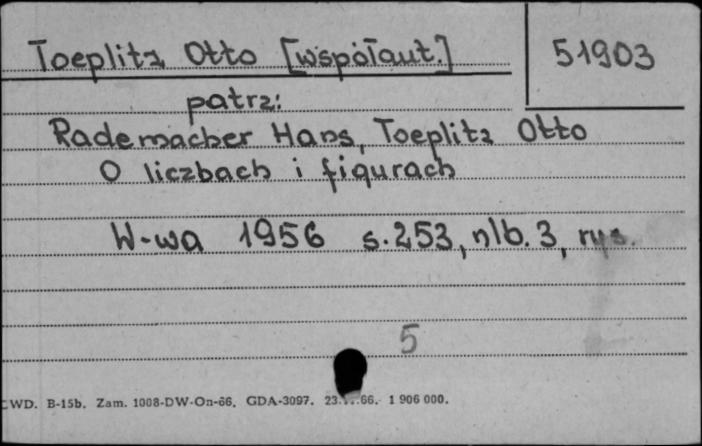 Toeplitz Otto [współaut.] 51903
patrz:
Rademacher Hans, Toeplitz Otto
O liczbach i figurach
W-wa 1956 s. 253, nlb. 3, rys.
5
CWD. B-15b. Zam. 1008-DW-On-66. GDA-3097. 1 906 000.